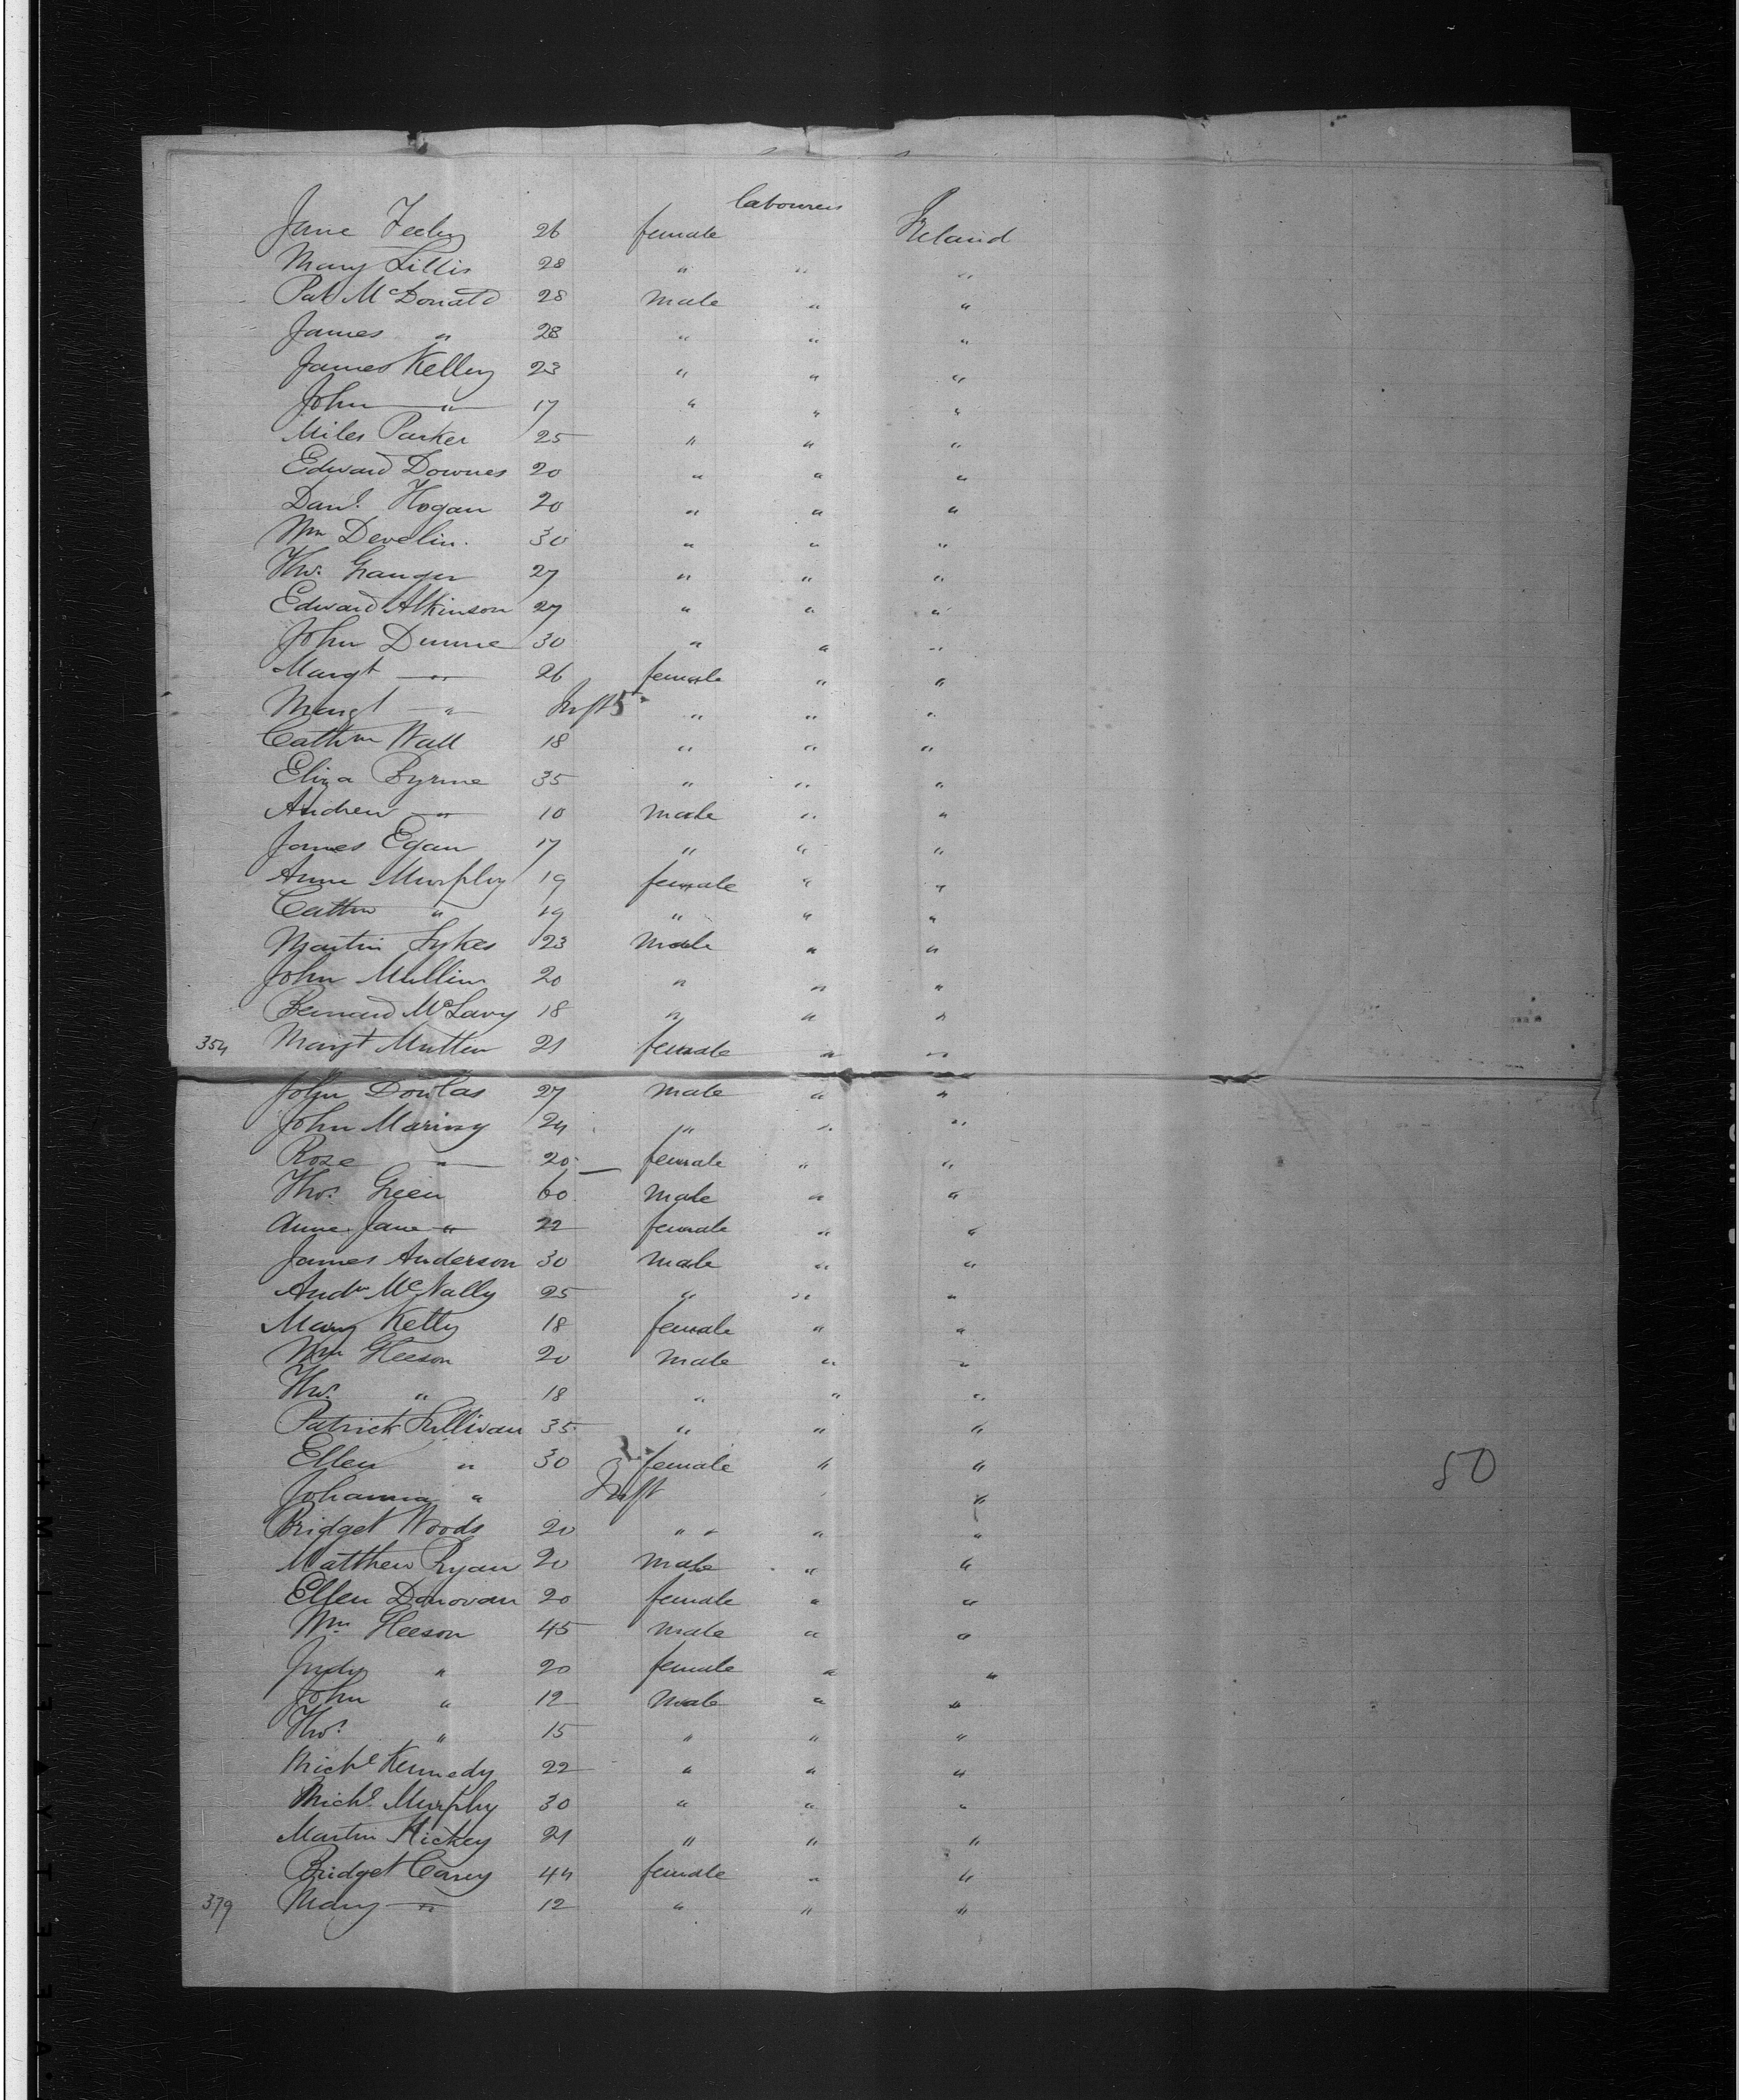 labourers
Jane Feeley 26 female Ireland
Mary Lillis 28 " " "
Pat McDonald 28 male " "
James " 28 " " "
James Kelley 23 " " "
John " 17 " " "
Miles Parker 25 " " "
Edward Downes 20 " " "
Danl. Hogan 20 " " "
Wm Develin. 30 " " "
Thos. Granger 27 " " "
Edward Atkinson 27 " " "
John Dunne 30 " " "
Margt " 26 female " "
Margt " Inft " " "
Cathne Wall 18 " " "
Eliza Byrne 35 " " "
Andrew " 10 male " "
James Egan 17 " " "
Anne Murphy 19 female " "
Cathne " 19 " " "
Martin Sykes 23 male " "
John Mullin 20 " " "
Bernard McLavy 18 " " "
354 Margt Mutten 21 female " "
John Doulas 27 male " "
John 24 " " "
Rose " 20 female " "
Thos. Green 60 male " "
Anne Jane " 22 female " "
James Anderson 30 male " "
Andw McNally 25 " " "
Mary Kelly 18 female " "
Wm Gleeson 20 male " "
Thos. " 18 " " "
Patrick Sullivan 35 " " "
Ellen " 30 female " "
50
Johanna " Inft " "
Bridget Woods 20 " " " "
Matthew Ryan 20 male " "
Ellen Donovan 20 female " "
Wm Gleeson 45 male " "
Judy " 20 female " "
John " 12 male " "
Thos. " 15 " " "
Michl Kennedy 22 " " "
Michl. Murphy 30 " " "
Martin Hickey 21 " " "
Bridget Carey 44 female " "
379 Mary " 12 " " "